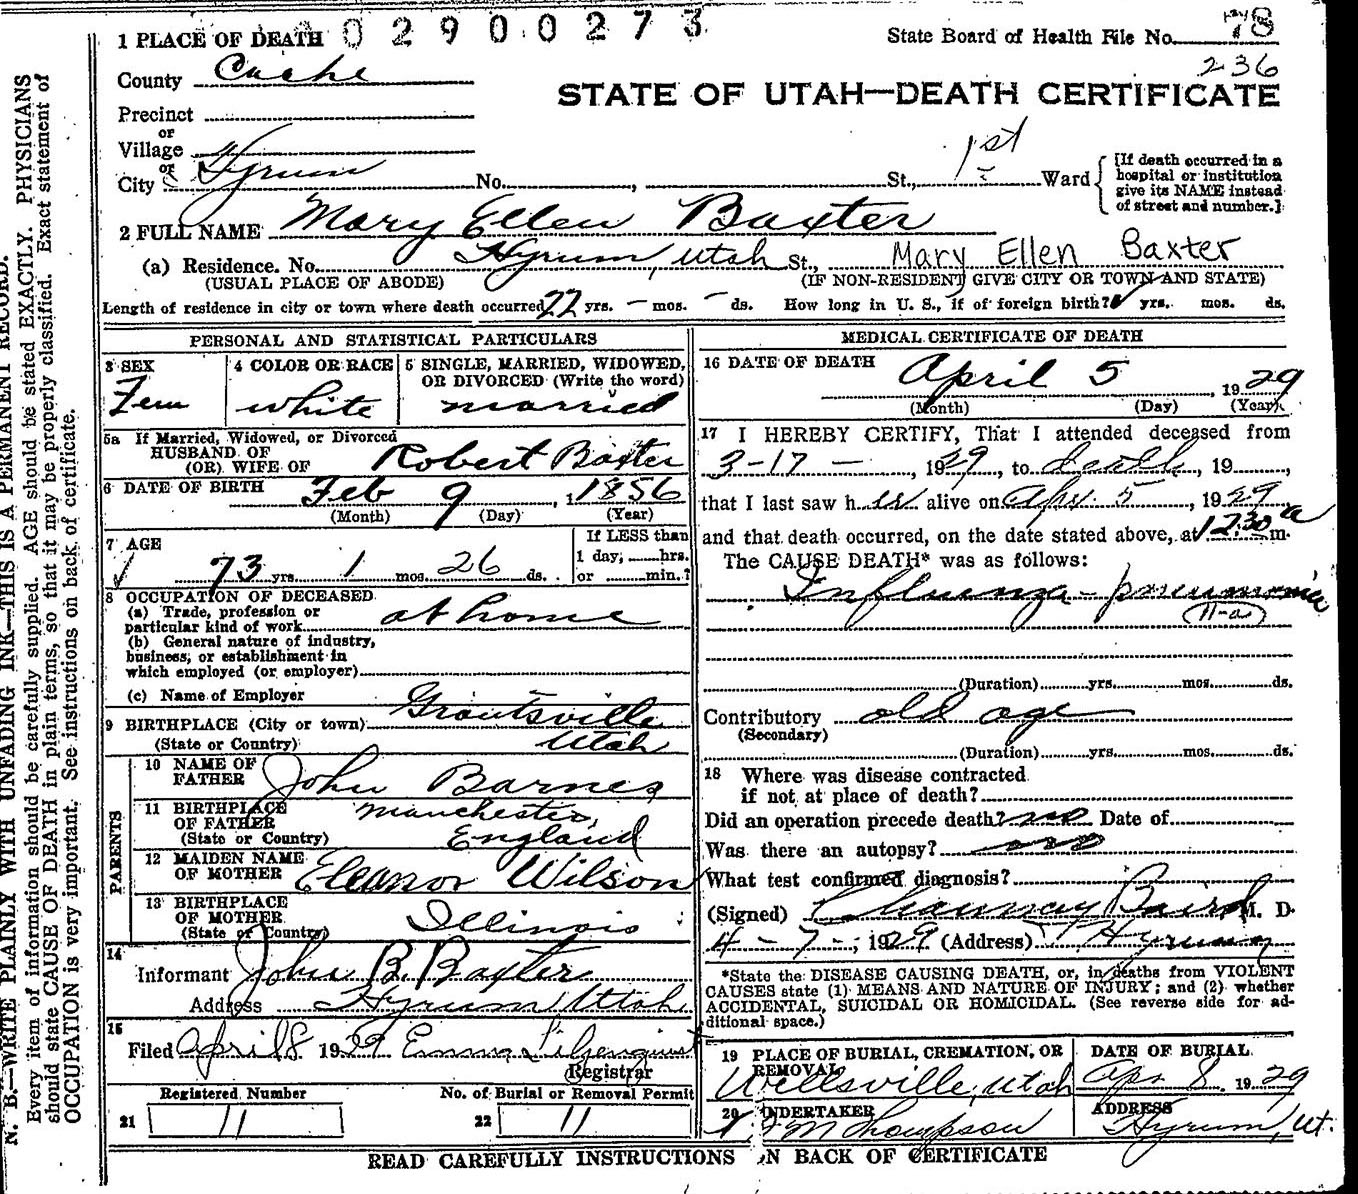 02900273
1 PLACE OF DEATH
State Board of Health File No. 78
236
County Cache
STATE OF UTAH—DEATH CERTIFICATE
Precinct
or
Village
or
City Hyrum No. , St., 1st Ward
[If death occurred in a
hospital or institution
give its NAME instead
of street and number.]
2 FULL NAME Mary Ellen Baxter
(a) Residence. No. Hyrum, Utah St., Mary Ellen Baxter
(USUAL PLACE OF ABODE) (IF NON-RESIDENT) GIVE CITY OR TOWN AND STATE)
Length of residence in city or town where death occurred 72 yrs. – mos. – ds. How long in U. S., if of foreign birth? yrs. mos. ds.
PERSONAL AND STATISTICAL PARTICULARS
3 SEX
Fem
4 COLOR OR RACE
white
5 SINGLE, MARRIED, WIDOWED,
OR DIVORCED (Write the word)
married
5a If Married, Widowed, or Divorced
HUSBAND OF
(OR) WIFE OF Robert Baxter
6 DATE OF BIRTH Feb 9, 1 1856
(Month) (Day) (Year)
7 AGE
73 yrs. 1 mos. 26 ds.
If LESS than
1 day, hrs.
or min.?
8 OCCUPATION OF DECEASED
(a) Trade, profession or
particular kind of work at home
(b) General nature of industry,
business, or establishment in
which employed (or employer)
(c) Name of Employer
9 BIRTHPLACE (City or town) Grantsville
(State or Country) Utah
PARENTS
10 NAME OF
FATHER John Barnes
11 BIRTHPLACE
OF FATHER Manchester,
(State or Country) England
12 MAIDEN NAME
OF MOTHER Eleanor Wilson
13 BIRTHPLACE
OF MOTHER Illinois
(State or Country)
14
Informant John B. Baxter
Address Hyrum Utah
15
Filed April 8 1929 Emma
Registrar
Registered Number No. of Burial or Removal Permit
21 11 22 11
MEDICAL CERTIFICATE OF DEATH
16 DATE OF DEATH April 5, 1929
(Month) (Day) (Year)
17 I HEREBY CERTIFY, That I attended deceased from
3-17 –, 1929, to death, 19 ,
that I last saw her alive on Apr. 5, 1929
and that death occurred, on the date stated above, at 12:30 a m.
The CAUSE DEATH* was as follows:
Influenza - pneumonia
11-a
(Duration) yrs. mos. ds.
Contributory old age
(Secondary)
(Duration) yrs. mos. ds.
18 Where was disease contracted
if not at place of death?
Did an operation precede death? no Date of
Was there an autopsy? no
What test confirmed diagnosis?
(Signed) Chauncay Baird M. D.
4 - 7 -, 1929 (Address) Hyrum
*State the DISEASE CAUSING DEATH, or, in deaths from VIOLENT
CAUSES state (1) MEANS AND NATURE OF INJURY; and (2) whether
ACCIDENTAL, SUICIDAL OR HOMICIDAL. (See reverse side for ad-
ditional space.)
19 PLACE OF BURIAL, CREMATION, OR
REMOVAL
Wellsville, Utah
DATE OF BURIAL
Apr 8 1929
20 UNDERTAKER
M Thompson
ADDRESS
Hyrum, Ut.
READ CAREFULLY INSTRUCTIONS ON BACK OF CERTIFICATE
N. B.—WRITE PLAINLY WITH UNFADING INK—THIS IS A PERMANENT RECORD.
Every item of information should be carefully supplied. AGE should be stated EXACTLY. PHYSICIANS
should state CAUSE OF DEATH in plain terms, so that it may be properly classified. Exact statement of
OCCUPATION is very important. See instructions on back of certificate.